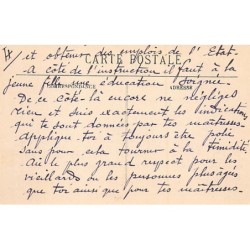 et obtenir des emplois de l'Etat.
CARTE POSTALE
A côté de l'instruction il faut à la
CORRESPONDANCE ADRESSE
jeune fille une éducation soignée
De ce côté là encore ne négliges
rien et suis exactement les indications
qui te sont données par tes maîtresses.
Applique toi à toujours être polie
sans pour cela tourner à la timidité
Aie le plus grand respect pour les
vieillards ou les personnes plus âgées
que toi ainsi que pour tes maîtresses.